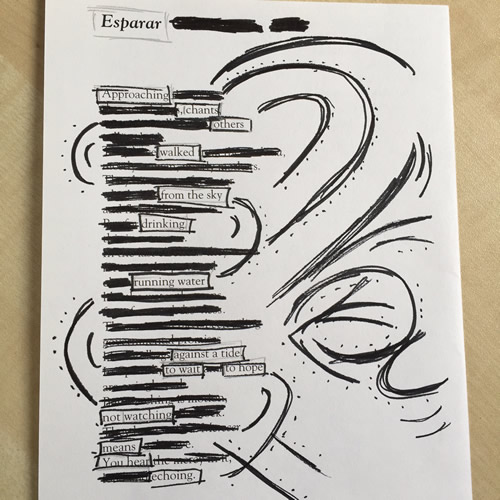 Esparar
Approaching
chants
others
walked
from the sky
drinking,
running water
against a tide
to wait to hope
not watching
means
You hear the
echoing.